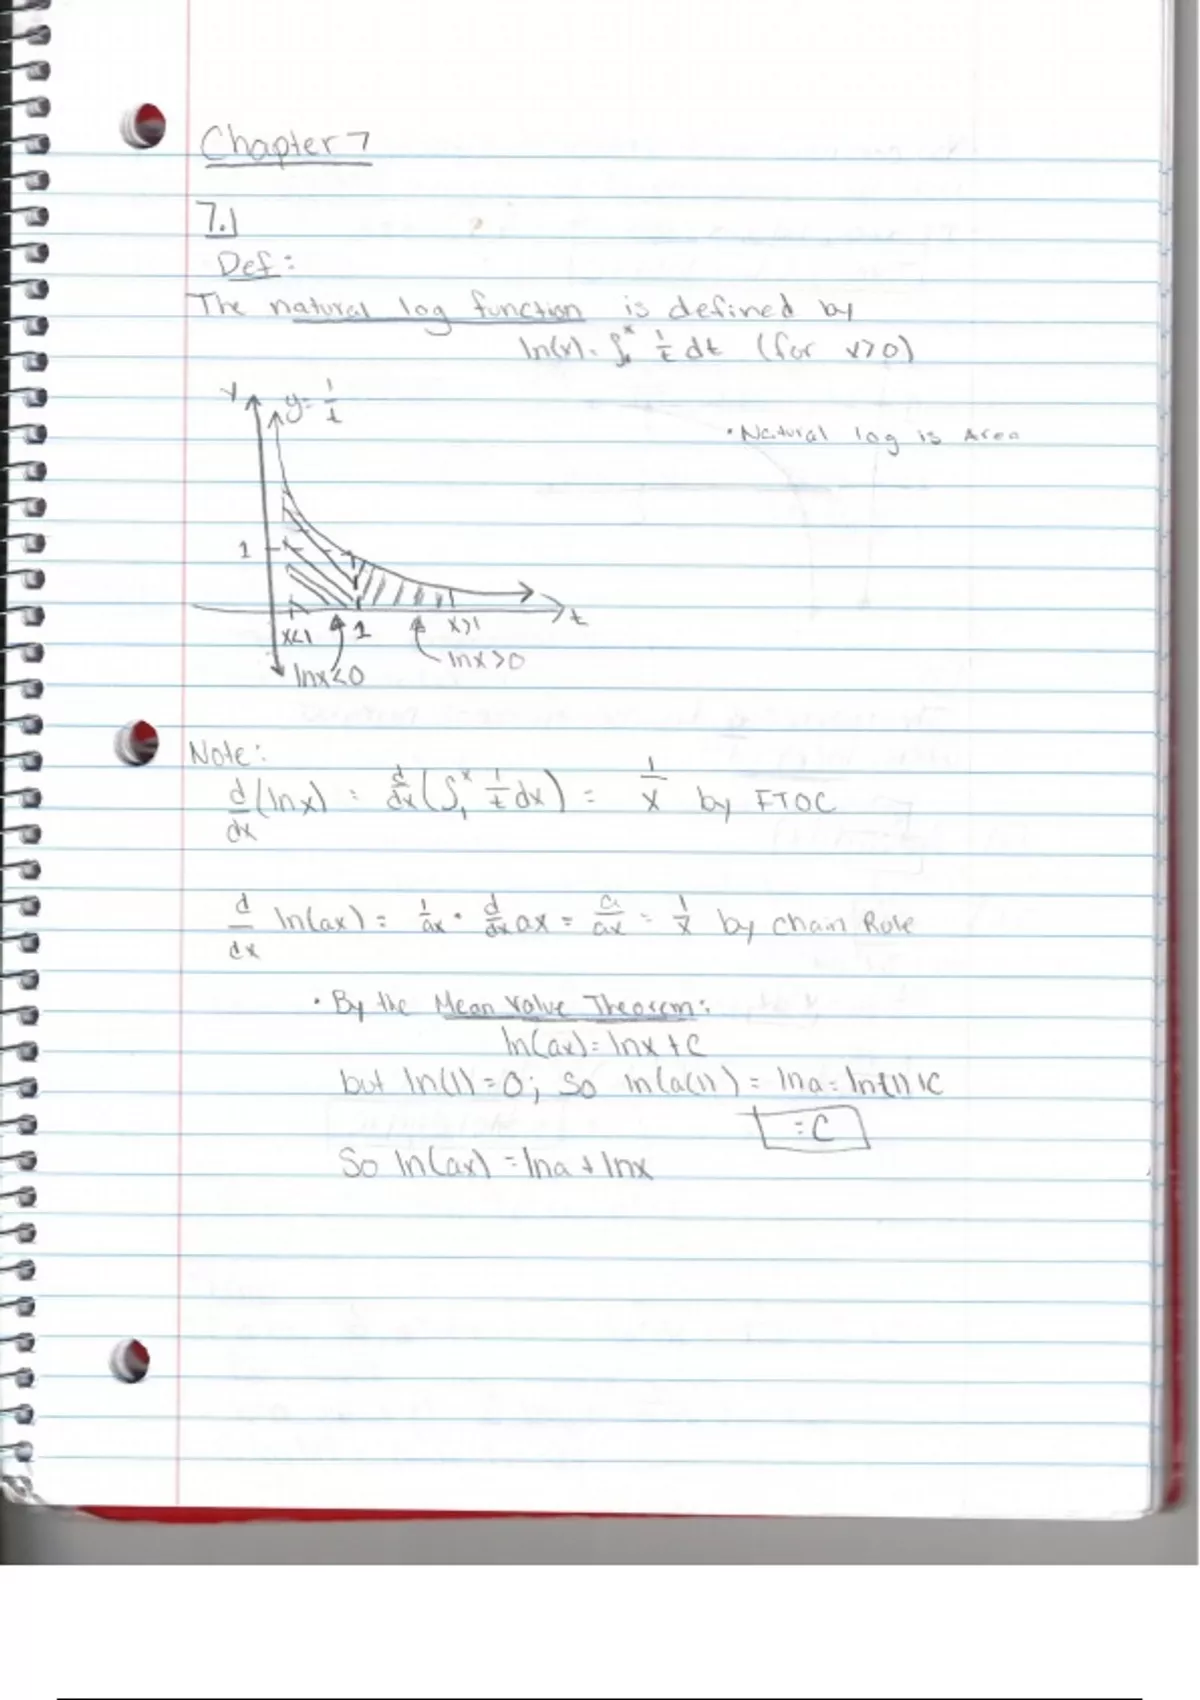 Chapter 7
7.1
Def:
The natural log function is defined by
ln(x) = ∫₁ˣ 1/t dt (for x>0)
y
y = 1/t
• Natural log is Area
1
x<1 1 x>1 t
lnx<0 lnx>0
Note:
d/dx (lnx) = d/dx (∫₁ˣ 1/t dx) = 1/x by FTOC
d/dx ln(ax) = 1/ax • d/dx ax = a/ax = 1/x by Chain Rule
• By the Mean Value Theorem:
ln(ax) = lnx + C
but ln(1) = 0; So ln(a(1)) = lna = ln(1)+C
= C
So ln(ax) = lna + lnx